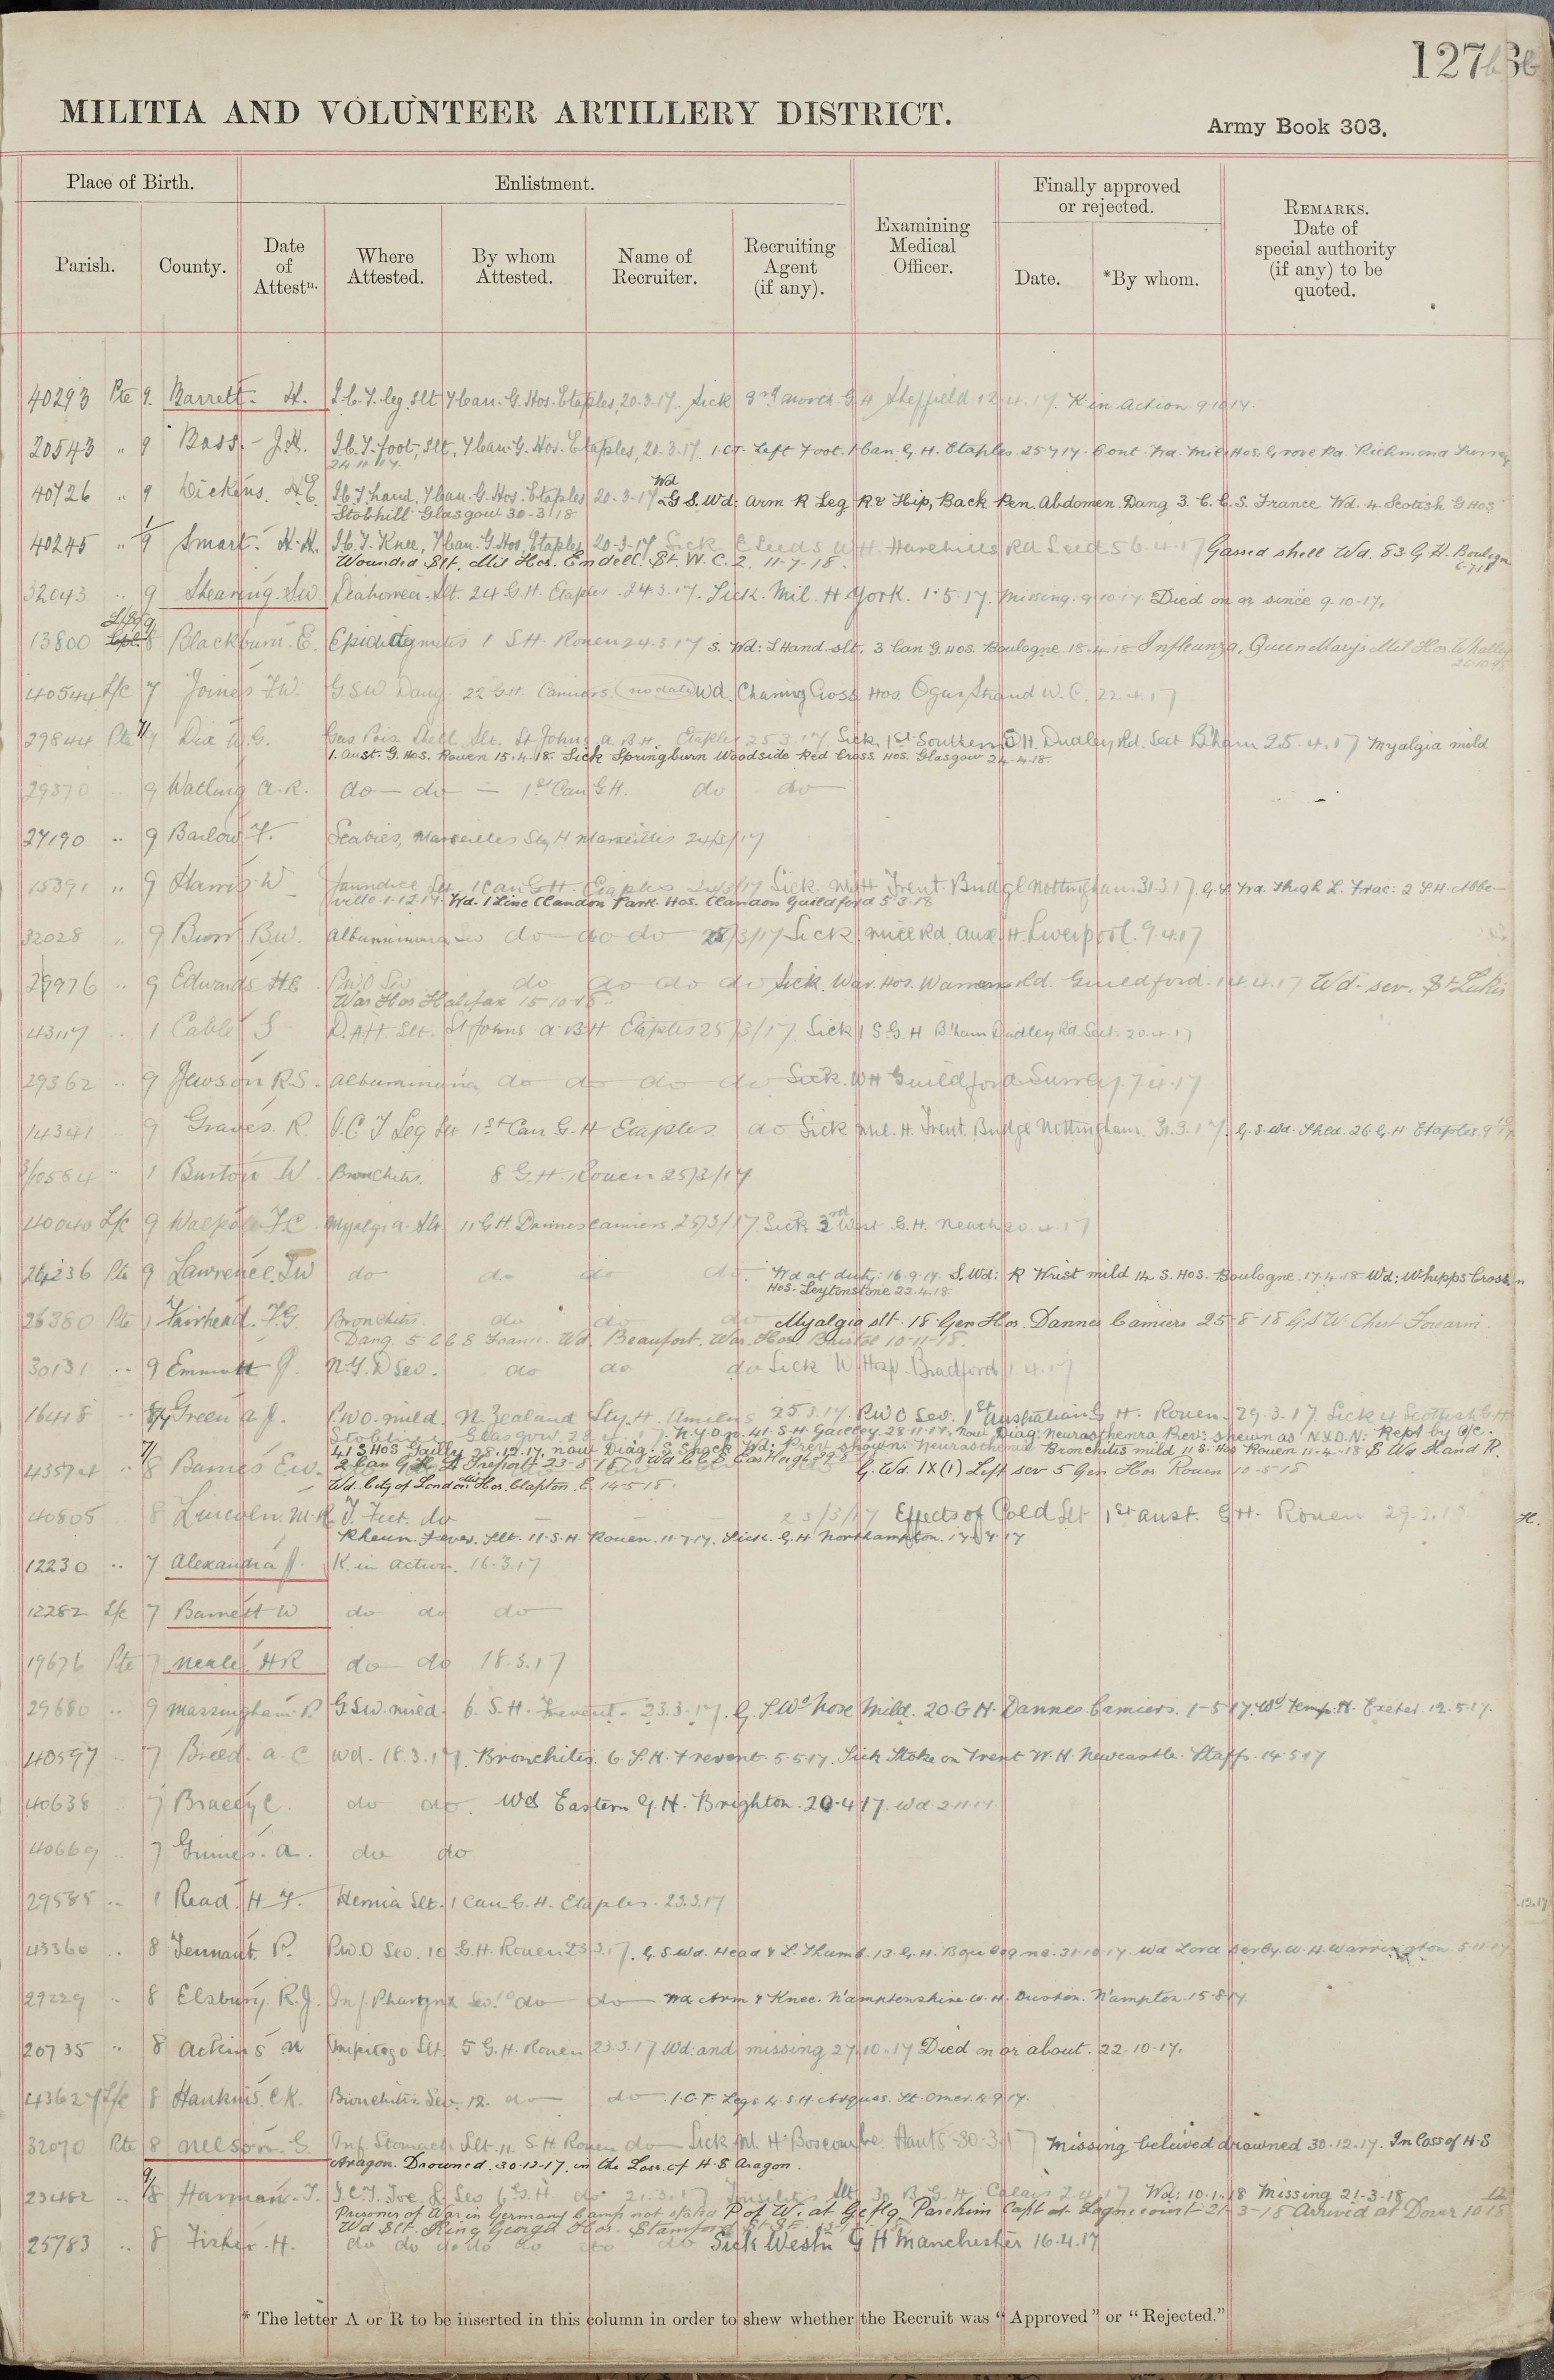 127
MILITIA AND VOLUNTEER ARTILLERY DISTRICT.
Army Book 303.
Place of Birth.
Enlistment.
Finally approved or rejected.
Parish.
County.
Date of Attestn.
Where Attested.
By whom Attested.
Name of Recruiter.
Recruiting Agent (if any).
Examining Medical Officer.
Date.
*By whom.
REMARKS. Date of special authority (if any) to be quoted.
40293 Pte 9 Barrett. H. I.C.T. leg, Slt 7 Can. G. Hos. Etaples, 20.3.17. Sick 3rd North G H Sheffield 12.4.17. K in Action 9 10 17.
20543 " 9 Bass. J.H. I.C.T. foot, Slt. 7 Can. G. Hos. Etaples, 20.3.17. I.C.T. Left Foot. 1 Can. G. H. Etaples. 25 7 17. Cont. Mil. Hos. Grove Rd. Richmond Surrey
24 11 17
40726 " 9 Dickens. H.E. I.C.T. hand, 7 Can. G. Hos. Etaples 20-3-17 Wd G.S. Wd: Arm R Leg R. & Hip, Back Pen. Abdomen. Dang 3. C.C.S. France Wd. 4 Scottish G Hos
Stobhill Glasgow 30-3-18
40245 " 1/9 Smart. H.H. I.C.T. Knee, 7 Can. G. Hos Etaples 20-3-17 Sick E Leeds W H. Harehills Rd Leeds 6.4.17 Gassed shell Wd. 83 G H. Boulogne
6-7-18
Wounded Slt. Mil Hos. Endell. St. W.C.2. 11-7-18.
32043 " 9 Shearing. S.W. Diahorrea. Slt. 24 G.H. Etaples. 24.3.17. Sick. Mil. H York. 1.5.17. Missing. 9.10.17. Died on or since 9.10.17.
13800 8 Blackburn. E. 1 S.H. Rouen 24.3.17 S. Wd: L Hand. slt. 3 Can G. Hos. Boulogne 18-4-18 Influenza, Queen Marys Mil Hos. Whalley
40544 L/c 7 Joines F.W. G.S.W Dang. 22 G.H. Camiers. (no date) Wd. Charing Cross Hos Agar Strand W.C. 22.4.17
29844 Pte 9 Dix W.G. Gas Pois Shell Slt. St Johns A B H. Etaples 25.3.17. Sick. 1st Southern G H. Dudley Rd. Sect B'ham 25.4.17 Myalgia mild
1. Aust. G. Hos. Rouen 15.4.18. Sick Springburn Woodside Red Cross Hos. Glasgow 24-4-18.
29370 " 9 Watling A.R. do - do - 1st Can G.H. do do
27190 " 9 Barlow F. Scabies, Marseilles Sty H Marseilles 24/3/17
15391 " 9 Harris. W Jaundice Slt. 1 Can G H. Etaples 24/3/17 Sick. Mil H Trent Bridge Nottingham. 31.3.17. G.S. Fra. Thigh L. Frac: 2 S H. Abbe-
ville. 1.12.17. Wd. 1 Line Clandon Park. Hos. Clandon Guildford 5.3.18
32028 " 9 B.W. Albuminuria Sev do do do 25/3/17 Sick. Mill Rd. Aux. H. Liverpool. 9.4.17
29976 " 9 Edwards H.E. P.U.O Sev do do do do Sick. War. Hos. Warren Rd. Guildford. 14.4.17 Wd. sev. St Lukes
War Hos Halifax 15-10-18.
43117 " 1 Cable S D. Aft. Slt. St Johns A.B.H Etaples 25/3/17 Sick 1 S.G.H B'ham Dudley Rd Sect. 20.4.17
29362 " 9 Jewson R.S. Albuminuria do do do do Sick. W H Guildford Surrey. 7.4.17
14341 9 Graves. R. I.C.T Leg Slt 1st Can G.H Etaples do Sick Mil. H. Trent. Bridge Nottingham. 31.3.17. G.S. Wd. Shld. 26 G.H Etaples. 9
3/10584 " 1 Burton W Bronchitis. 8 G.H. Rouen 25/3/17
40040 L/c 9 Walpole F.C. Myalgia. Slt 11 G.H. Dannes Camiers 25/3/17. Sick 3rd West. G.H. Neath 20.4.17
24236 Pte 9 Lawrence. F.W do do do do. Wd at duty: 16.9.17. S. Wd: R Wrist mild 14 S. Hos. Boulogne. 17.4.18 Wd: Whipps Cross
Hos. Leytonstone 22.4.18.
26380 Pte 1 Fairhead. F.G. Bronchitis. do do do Myalgia slt. 18 Gen Hos. Dannes Camiers 25-8-18 G.S.W. Chest Forearm.
Dang. 5 C C S France. Wd. Beaufort. War. Hos. Bristol 10-11-18.
30131 " 9 Emmott J. N.Y.D Sev. do do do Sick W. Hosp. Bradford 1.4.17
16418 " 8/7 Green A J. P.U.O. mild. N. Zealand Sty. H. Amiens 25.3.17. P.U.O Sev. 1st Australian G H. Rouen. 29.3.17. Sick 4 Scottish G.H
Stobhill Glasgow. N.Y.D. 41. S.H. Gailley. 28.11.17. now Diag. Neurasthenia Prev: shewn as N.Y.D.N: Rept by O/c.
41 S Hos Gailly. 28.12.17. now Diag: S Shock Wd: Prev shown. Neurasthenia Bronchitis mild 11 S. Hos Rouen 11-4-18 S Wd Hand R.
43574 " 8 Barnes E.W. 2 Can G.H. Treport 23-8-18 G. Wd. IX (1) Left sev 5 Gen Hos Rouen 10-5-18
Wd. City of London Mil Hos. Clapton. E. 14-5-18.
40805 8 Lincoln. M.R T. Feet. do 23/3/17 Effects of Cold Slt 1st Aust. G H. Rouen 29.3.17
Rheum. Fever. Slt. 11. S.H. Rouen. 11.7.17. Sick. G.H Northampton.
12230 " 7 Alexandra J. K. in action. 16.3.17
12282 L/c 7 Barnett W do do do
19676 Pte 7 Neale. H R do do 18.3.17
29680 " 9 Massingham. P. G.S.W. mild. 6. S.H. Frevent. 23.3.17. G.S. Wd Nose Mild. 20 G H. Dannes Camiers. 1-5-17. Wd Temp. H. Exeter. 12.5.17.
40597 7 Breed. A.C Wd. 18.3.17. Bronchitis. 6 S.H. Frevent. 5.5.17. Sick Stoke on Trent W.H. Newcastle. Staffs. 14.5.17
40638 7 Bracey C. do do. Wd Eastern G.H. Brighton. 20.4.17. Wd. 2.11.17
40669 " 7 Grimes. A. do do
29585 " 1 Read. H.F. Hernia Slt. 1 Can. G.H. Etaples. 23.3.17
43360 " 8 Tennant. P. P.U.O Sev. 10 G.H. Rouen 23.3.17. G.S. Wd. Head & L. Thumb. 13 G.H. Boulogne. 31.10.17. Wd Lord Derby W.H. Warrington. 5.11.17
29229 " 8 Elsbury. R.J. Inf. Pharynx Sev. 10 do do Wd Arm & Knee. N'amptonshire W.H. Duston. N'ampton. 15.8.17.
20735 " 8 Ackins N Impitigo Slt. 5 G.H. Rouen 23.3.17 Wd: and missing 27.10.17 Died on or about. 22-10-17.
43627 L/c 8 Hankins. C.K. Bronchitis. Sev. 12. do do I.C.T. Legs 4. S.H. Arques. St. Omer. 4.9.17.
32070 Pte 8 Nelson. G. Inf. Stomach Slt. 11. S.H. Rouen do Sick Mil H Boscombe. Hants-30-3-17 Missing beleived drowned 30.12.17. In loss of H.S
Aragon. Drowned. 30-12-17. in the Loss. of H S Aragon.
23482 " 9/8 Harman. T. I.C.T. Toe. Sev 6 G.H do 21.3.17 Slt 30 B.G.H. Calais 2.4.17 Wd: 10.1.18 Missing 21-3-18
Prisoner of War in Germany Camp not stated P of W. at Geflg. Parchim Capt at Lagnicourt - 21-3-18 Arrived at Dover
Wd Slt. King George Hos. Stamford St S.E.
25783 " 8 Fisher. H. do do do do do do do Sick Westn G H Manchester 16.4.17
* The letter A or R to be inserted in this column in order to shew whether the Recruit was "Approved" or "Rejected."